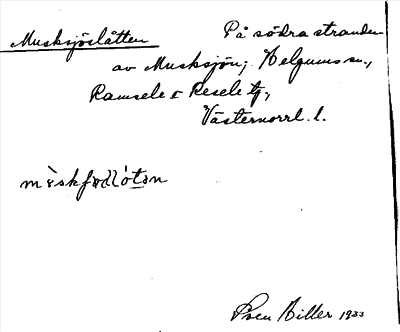 Musksjöslåtten På södra stranden
av Musksjön; Helgums sn.,
Ramsele o Resele tg,
Västernorrl. l.
Sven Hiller 1933